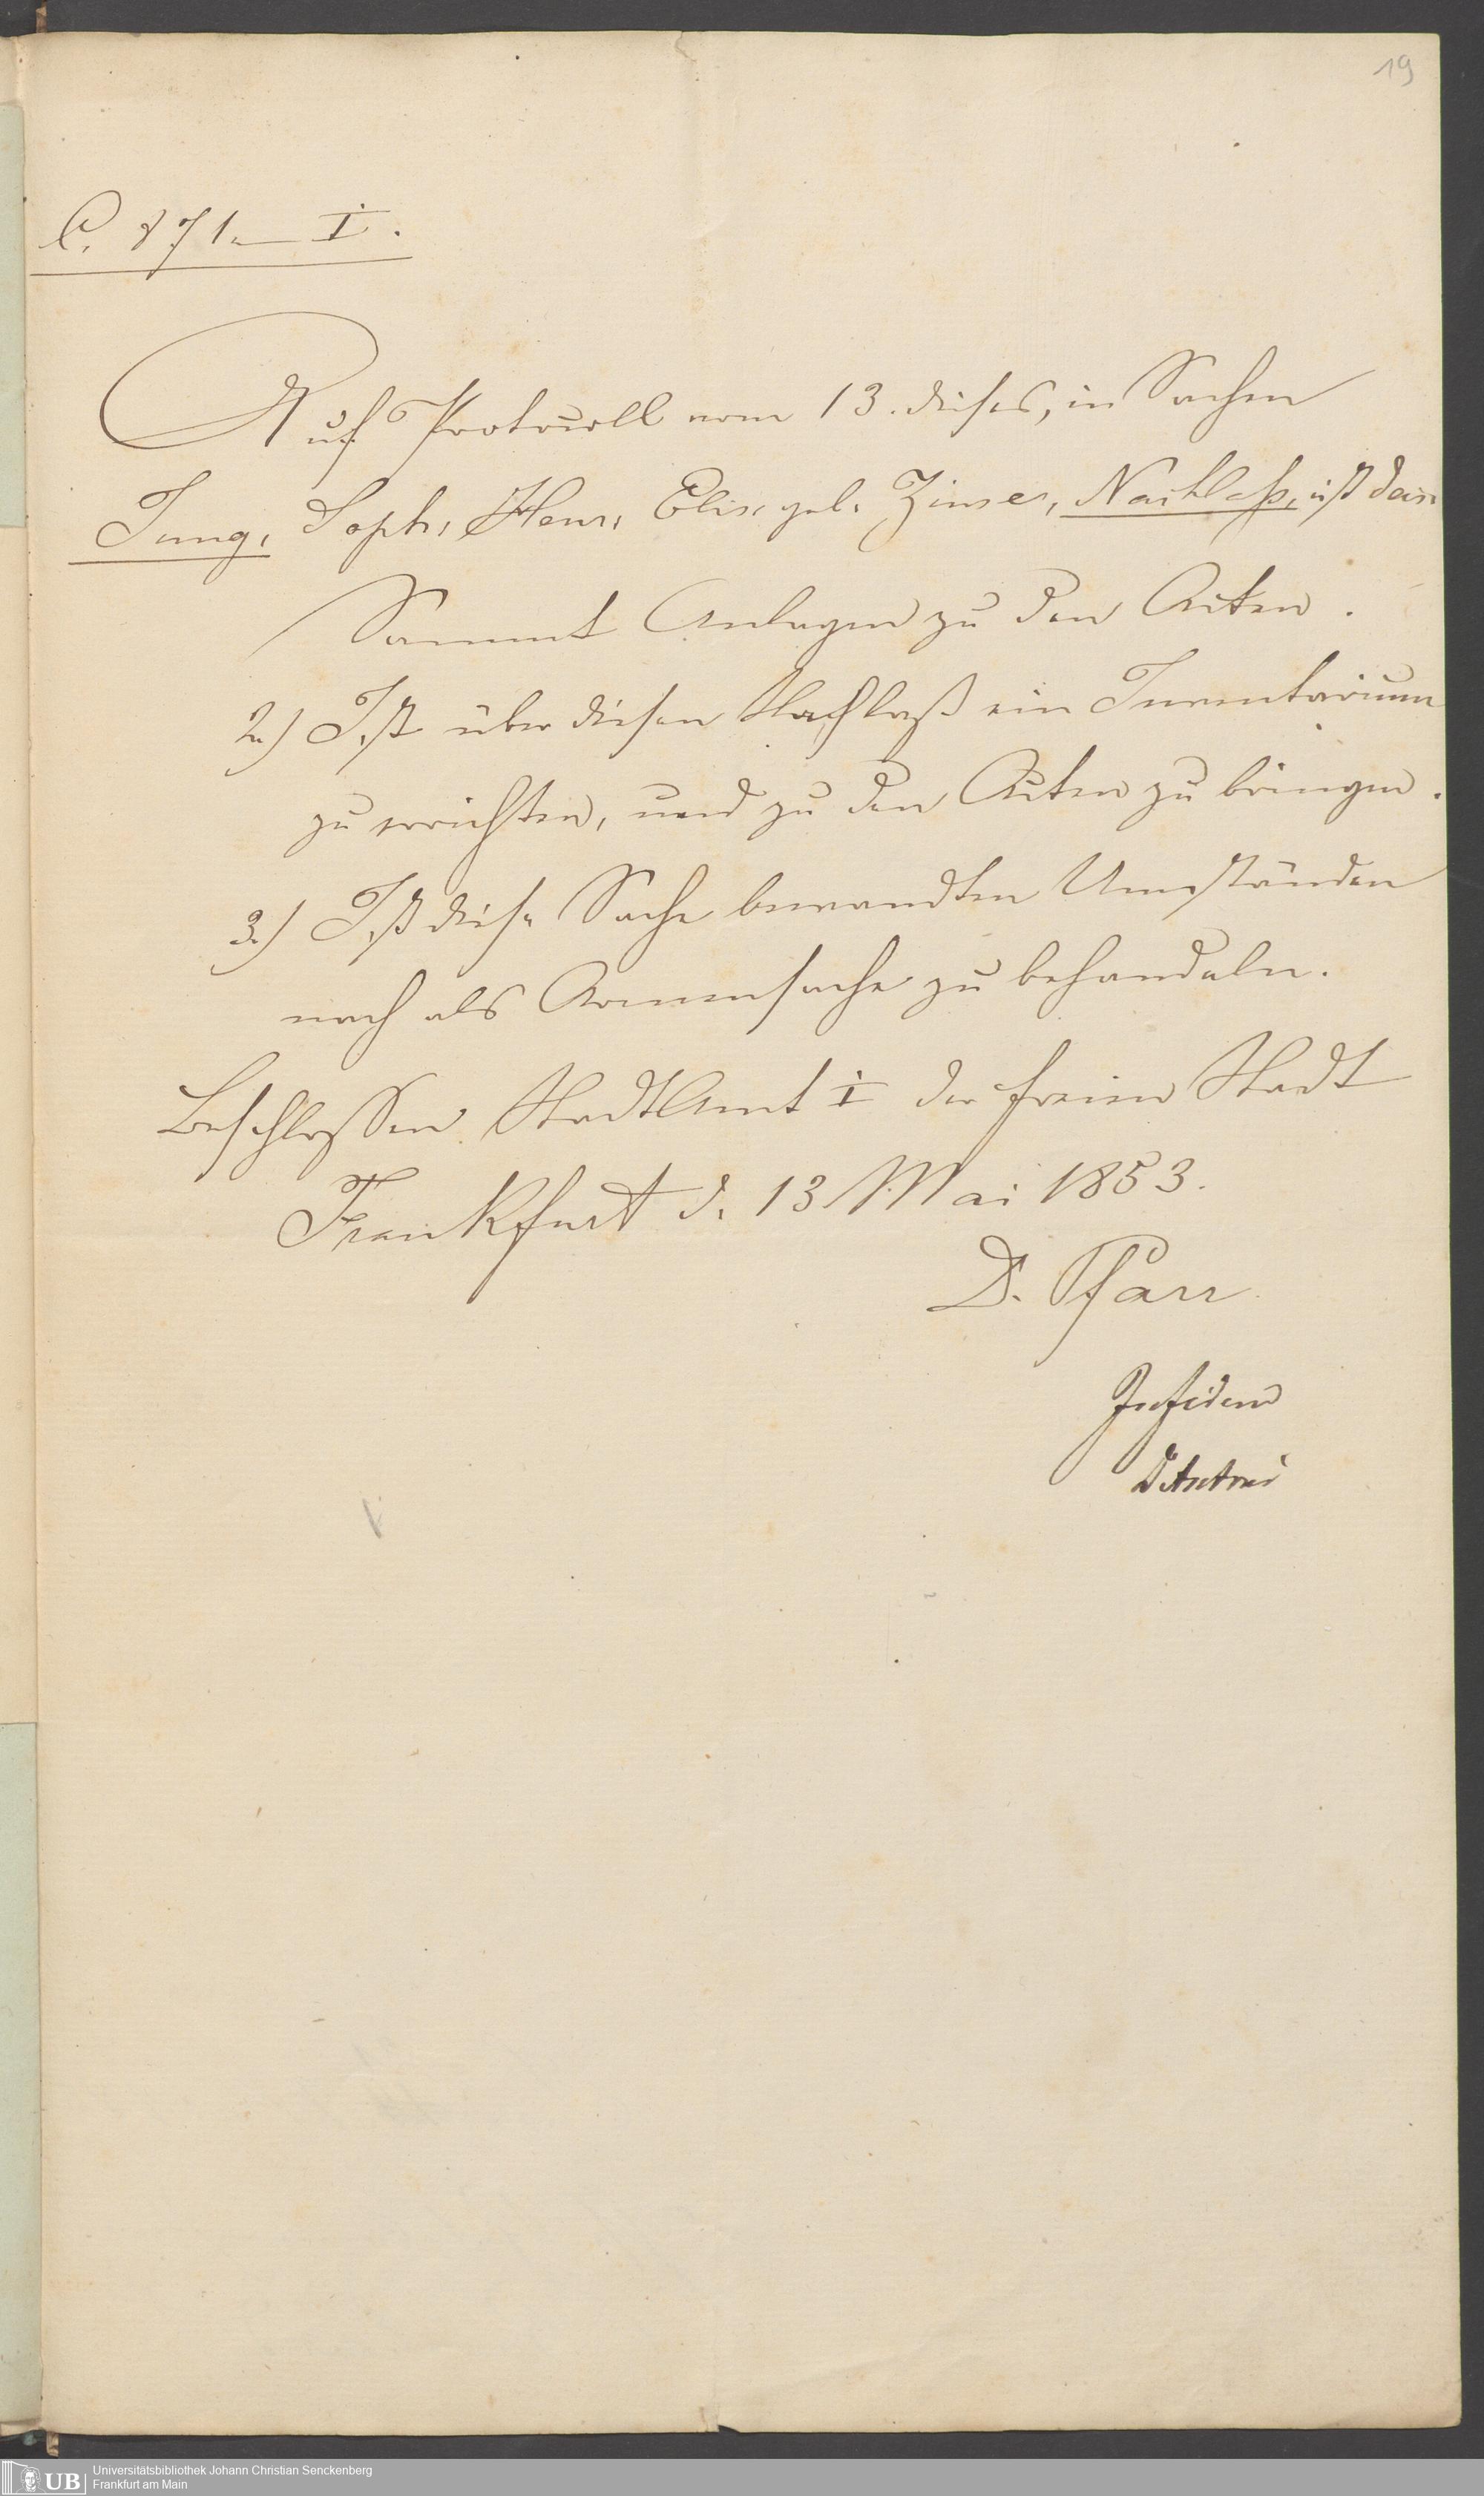 19
C. 871. I.
Auf Protocoll vom 13. dieses, in Sachen
Jung, Soph. Henr. Elis. geb. Zinser, Nachlaß, ist das
Sammt Anlagen zu den Acten.
2.) Ist über diesen Nachlaß ein Inventarium
zu errichten, und zu den Acten zu bringen.
3.) Ist diese Sache bewandten Umständen
nach als Armensache zu behandeln.
Beschlossen StadtAmt I der freien Stadt
Frankfurt d. 13 Mai 1853.
D. Pfarr
In fidem
Universitätsbibliothek Johann Christian Senckenberg
UB
Frankfurt am Main